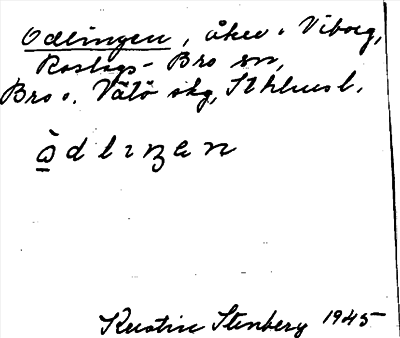 Odlingen, åker i Viborg,
Roslags-Bro sn,
Bro o. Vätö skg, Sthlms l.
ɷ̀dlıŋen
Kerstin Stenberg 1945